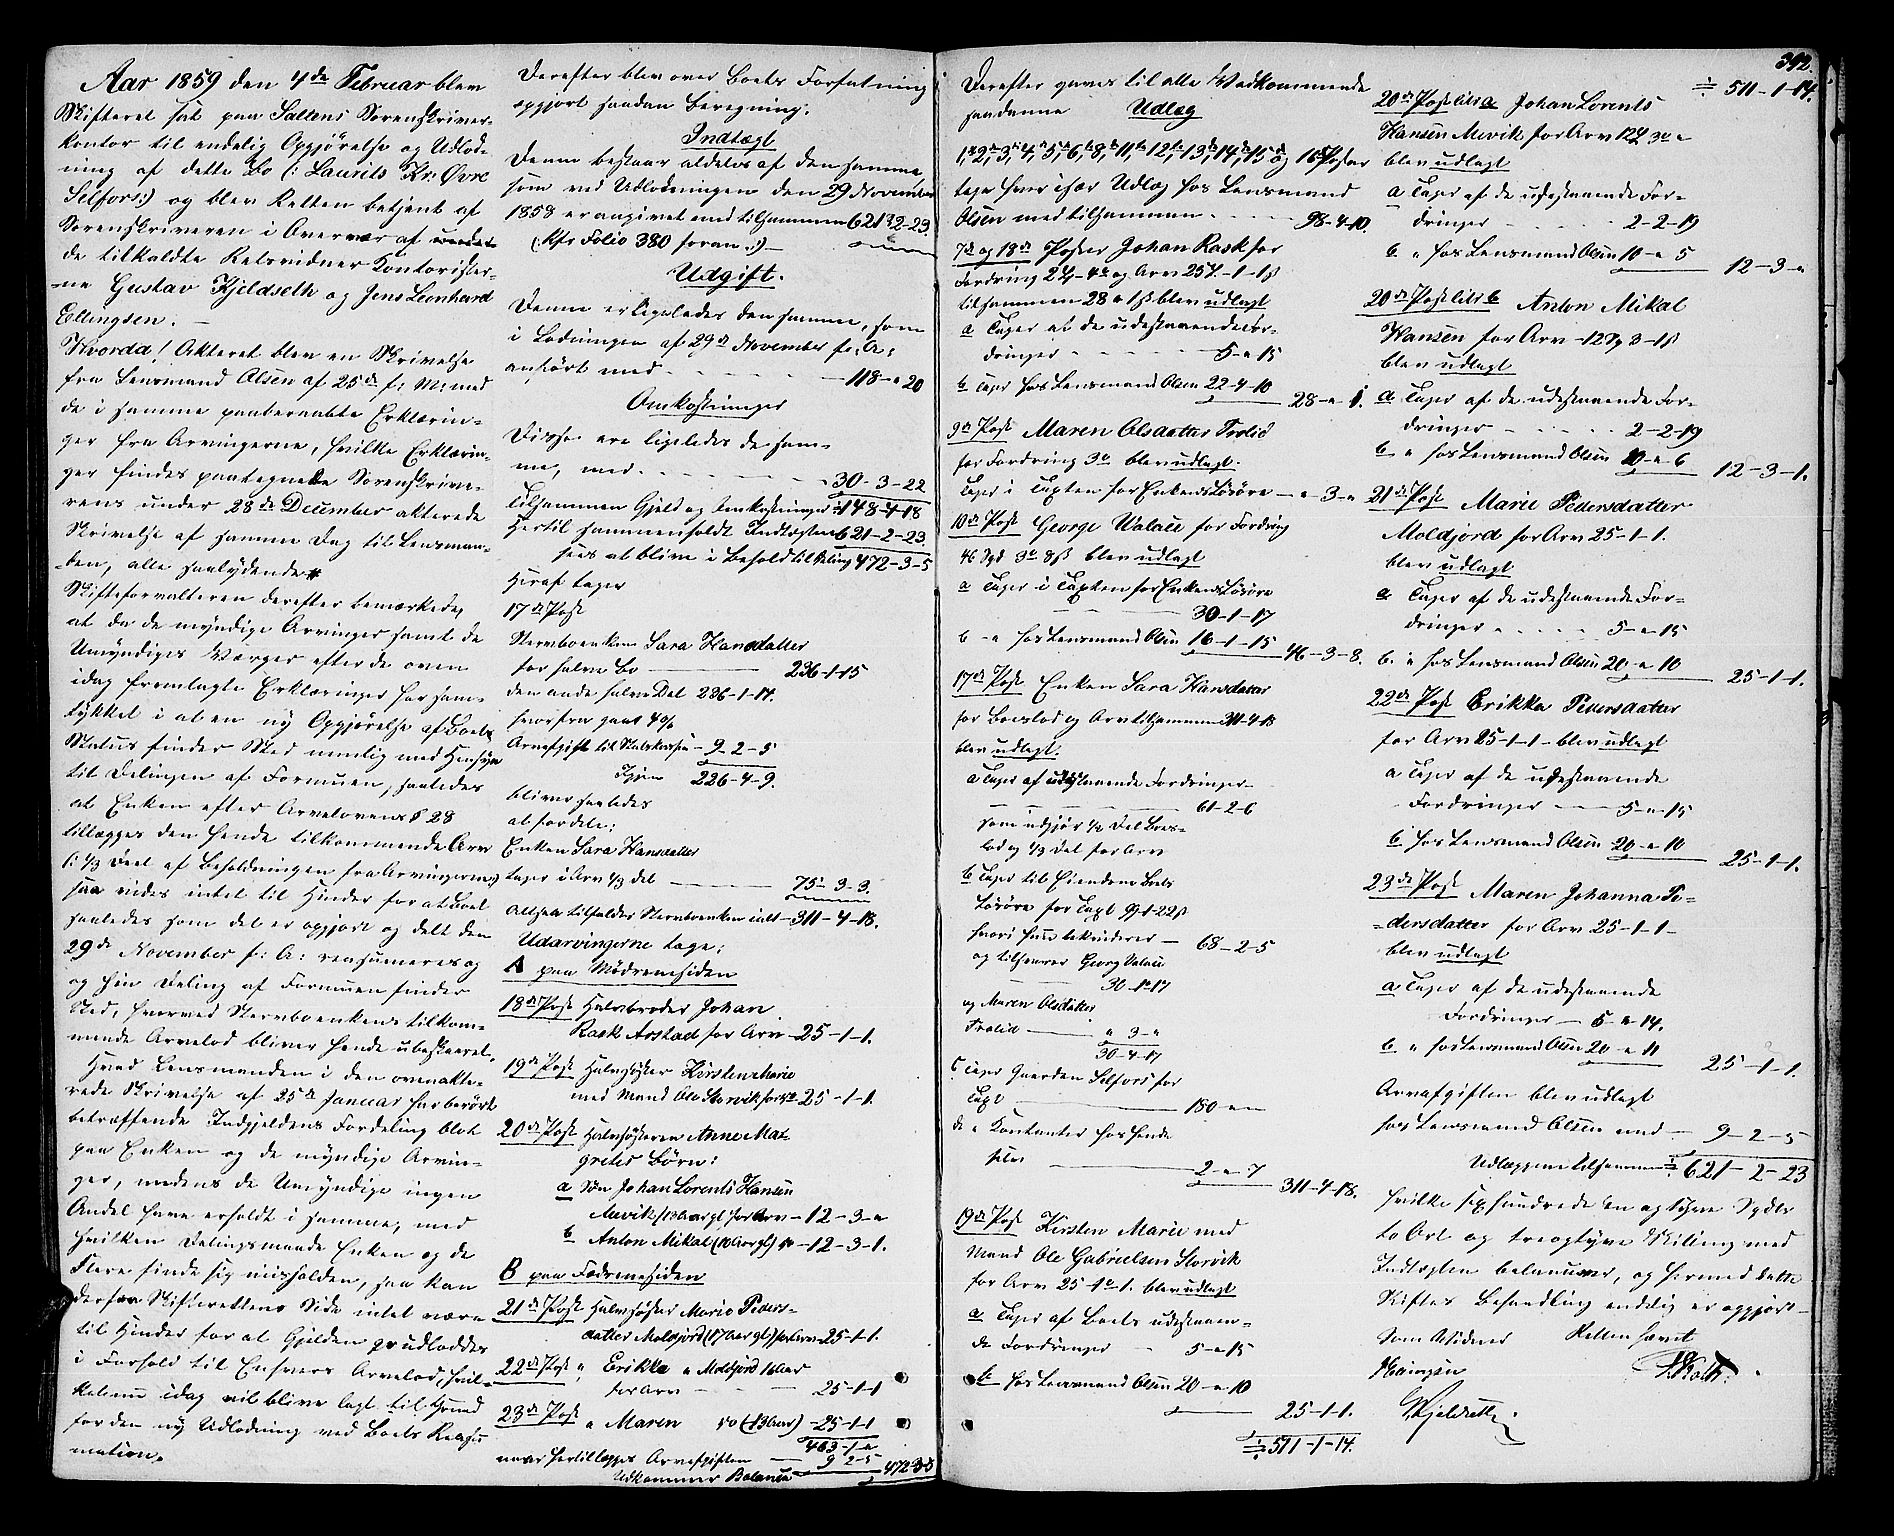 Aar 1859 den 4de Februar blev
Skifteret sat paa Saltens Sorenskriver-
kontor til endelig Opgjørelse og Udlod-
ning af dette Bo (: Laurits Kr: Øvre
Selfors:) og blev Retten betjent af
Sorenskriveren i Overvær af under
de tilkaldte Retsvidner Kontorister-
ne Gustav Kjeldseth og Jens Leonhard
Ellingsen. –
Hvorda! Akteret blev en Skrivelse
fra Lensmand Olsen af 25de f: M: med
de i samme paaberaabte Erklærin-
ger fra Arvingerne, hvilke Erklærin-
ger findes paategnede Sorenskrive-
rens under 28de December akterede
Skrivelse af samme Dag til Lensman-
den, alle saalydende #
Skifteforvalteren derefter bemærkede,
at da de myndige Arvinger samt de
Umyndiges Værger efter de oven
idag fremlagte Erklæringer har sam-
tykket i at en ny Opgjørelse af Boets
Status finder Sted nemlig med Hensyn
til Delingen af Formuen, saaledes
at Enken efter Arvelovens § 28
tillægges den hende tilkommende Arv
(: 1/3 Deel af Beholdningen fra Arvingerne:)
saa vides intet til Hinder for at Boet
saaledes som det er opgjort og delt den
29de November f: A: reasumeres og
og hin Deling af Formuen finder
Sted, hvorved Stervboenkens tilkom-
mende Arvelod bliver hende ubeskaaret.
Hvad Lensmanden i den ovenakte-
rede Skrivelse af 25de Januar har berørt
betræffende Indgjeldens Fordeling blot
paa Enken og de myndige Arvin-
ger, medens de Umyndige ingen
Andel have erholdt i samme, med
hvilken Delingsmaade Enken og de
Flere finde sig misholden, saa kan
derfra Skifterettens Side intet være
til Hinder for at Gjelden pr udloddes
i Forhold til Enhvers Arvelod, hvil-
ket nu idag vil blive lagt til Grund
for den ny Udlodning ved Boets Reasu
mation.
Derefter blev over Boets Forfatning
opgjort saadan Beregning:
Indtægt
Denne bestaar aldeles af den samme
som ved Udlodningen den 29 November
1858 er angivet med tilsammen 621 2-23
(Kfr Folio 380 foran:) –
Udgift.
Denne er ligeledes den samme, som
i Lodningen af 29de November f: A:
anført med – 118 – " 20
Omkostninger
Disse ere ligeledes de sam-
me, med – 30-3-22
Tilsammen Gjeld og Omkostninger 148-4-18
Hertil sammenholdt Indtægten 621-2-23
sees at blive i Behold til Deling 472-3-5
Heraf tager
17de Post
Stervboenken Sara Hansdatter
for halve Bo – 236-1-15
den ande halve Del 236-1-14.
hvorfra gaar 4 %
Arveafgift til Statskassen – 9-2-5
Igjen 226-4-9.
bliver saaledes
at fordele:
Enken Sara Hansdatter
tager i Arv 1/3 del – 75-3-3.
Altsaa tilfalder Stervboenken ialt – 311-4-18.
Udarvingerne tage:
A paa Mødrenesiden
18de Post Halvbroder Johan
Rask Arstad for Arv – 25-1-1.
19de Post Halvsøster Kirsten Marie
med Mand Ole Storvik for Do 25-1-1.
20de Post Halvsøsteren Anne Mar
gretes Børn:
a Søn Johan Lorents Hansen
Mevik (13 Aar gl.) for Arv – 12-3-"
b Anton Mikal (10 Aar gl.) Do – 12-3-1.
B paa Fædrenesiden
21de Post Halvsøster Marie Peders-
datter Moldjord (17 Aar gl.) for Arv – 25-1-1.
22de Post " Erikka " Moldjord 16 Aar
for Arv – 25-1-1
23de Post " Maren Do (13 Aar) – 25-1-1
463-1-"
naar hertillægges Arveafgiften – 9 2-5
Udkommer Balance – 472-3-5
392.
Derefter gaves til alle Vedkommende
saadanne Udlæg
1, 2, 3, 4, 5, 6, 8, 11, 12, 13, 14, 15 og 16 Poster
tager hver især Udlæg hos Lensmand
Olsen med tilsammen – 98-4-10.
7de og 18de Poster Johan Rask for
Fordring 2 4 og Arv 25-1-1ß
tilsammen 28 " 1ß blev udlagt
a Tager af de udestaaende For-
dringer – 5-"15
b Tager hos Lensmand Olsen 22-4-10
28-" 1.
9de Post Maren Olsdatter Trolid
for Fordring 3 " blev udlagt.
Tager i Taxten for Enkens Løsøre – " – 3-"
10de Post George Walace for Fordring
46 Spd 3 " 8ß blev udlagt
a Tager i Taxten for Enkens Løsøre
30-1-17
b – " hos Lensmand Olsen 16-1-15
46-3-8.
17de Post Enken Sara Hansdatter
for Boeslod og Arv tilsammen 311-4-18
blev udlagt.
a Tager af udestaaende Fordringer –
61-2-6
som udgjør 1/2 Del Boes-
lod og 1/3 Del for Arv
b Tager til Eiendom Boets
Løsøre for Taxt 99-1-22ß
hvori hun bekvitterer – 68-2-5
og tilhører Georg Valace
30-1-17
og Maren Olsdatter
Trolid – " 3-"
30-4-17
c Tager Gaarden Selfors for
Taxt – 180 " "
d " Kontanter hos hende
selv – 2-"7
311-4-18.
19de Post Kirsten Marie med
Mand Ole Gabrielsen Storvik
for Arv 25-1-1. blev udlagt
a Tager af Boets udestaaen-
de Fordringer – 5-"15
b hos Lensmand Olsen 20-"10
25-1-1.
511-1-14.
511-1-14.
20de Post litr a Johan Lorents
Hansen Mevik for Arv 12 3 "
blev udlagt
a Tager af de udestaaende For-
dringer – 2-2-19
b " hos Lensmand Olsen 10-"5
12-3-"
20de Post litr b Anton Mikal
Hansen for Arv – 12 3-1ß
blev udlagt
a Tager af de udestaaende For-
dringer – 2-2-19
b " hos Lensmand Olsen 10-"6
12-3-1.
21de Post Marie Pedersdatter
Moldjord for Arv 25-1-1.
blev udlagt
a Tager af de udestaaende For-
dringer – 5-"15
b. " hos Lensmand Olsen 20-"10
25-1-1.
22de Post Erikka Pedersdatter
for Arv 25-1-1 – blev udlagt
a Tager af de udestaaende
Fordringer – 5-"15
b hos Lensmand Olsen 20-"10
25-1-1.
23de Post Maren Johanna Pe-
dersdatter for Arv 25-1-1-
blev udlagt
a Tager af de udestaaende
Fordringer – 5 " 14.
b " hos Lensmand Olsen 20-"11
25-1-1.
Arveafgiften blev udlagt
hos Lensmand Olsen med – 9-2-5
Udlæggene tilsammen 621-2-23
hvilke sexhundrede en og tyve Spdlr
to Ort og treogtyve Skilling med
Indtægten balancerer, og hermed dette
Skiftes Behandling endelig er opgjort –
Som Vidner Retten hævet
Kjeldseth.